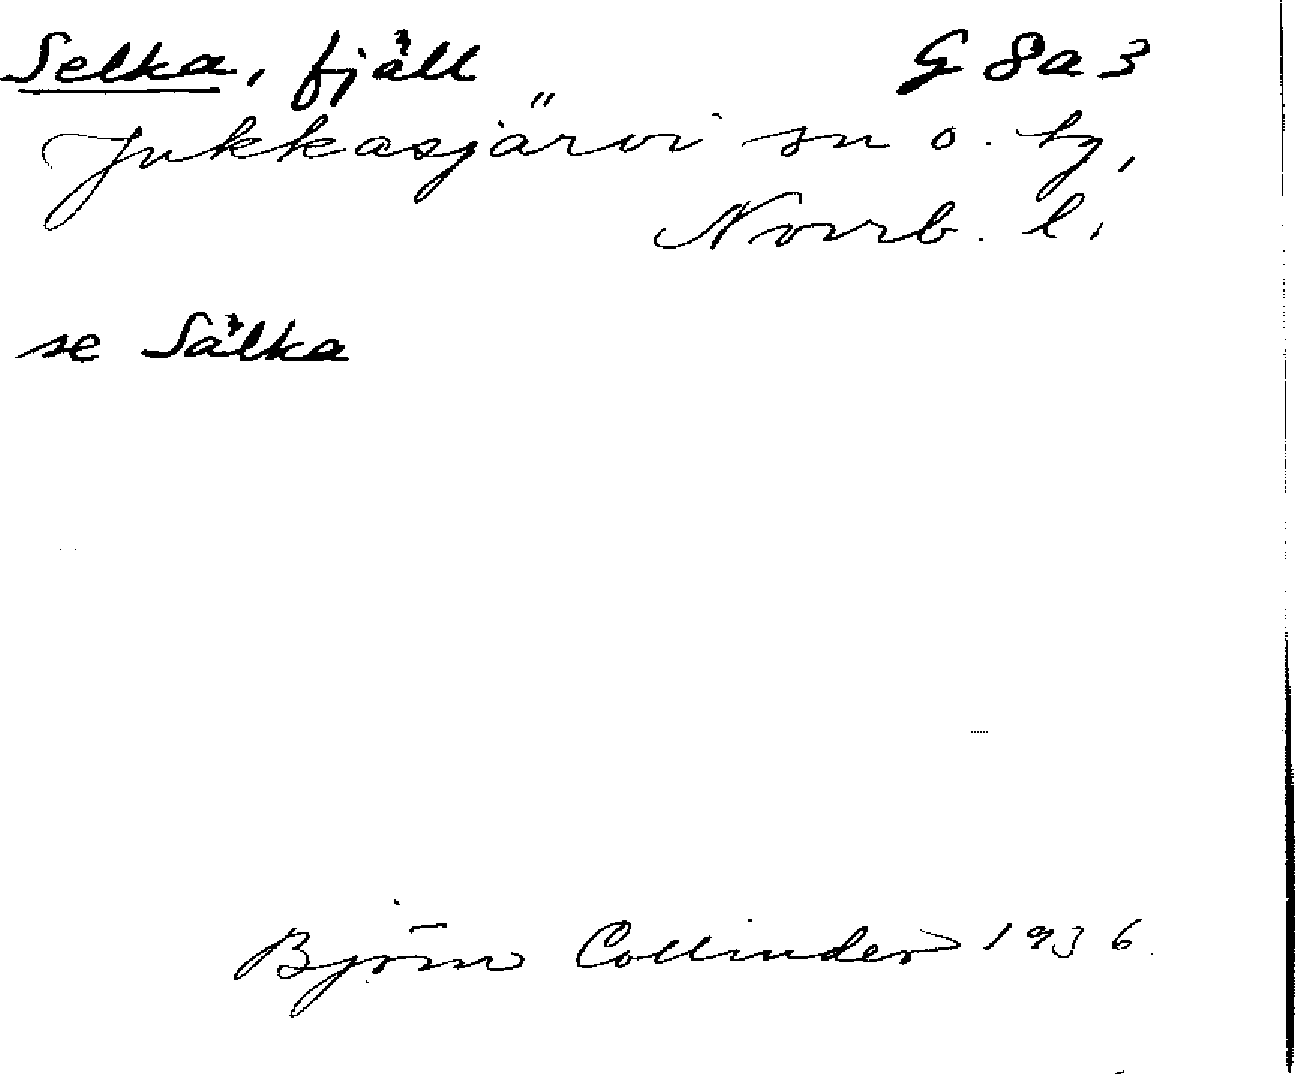 Selka, fjäll G 8 a 3
Jukkasjärvi sn o. tg,
Norrb. l.
se Sälka
Björn Collinder 1936.